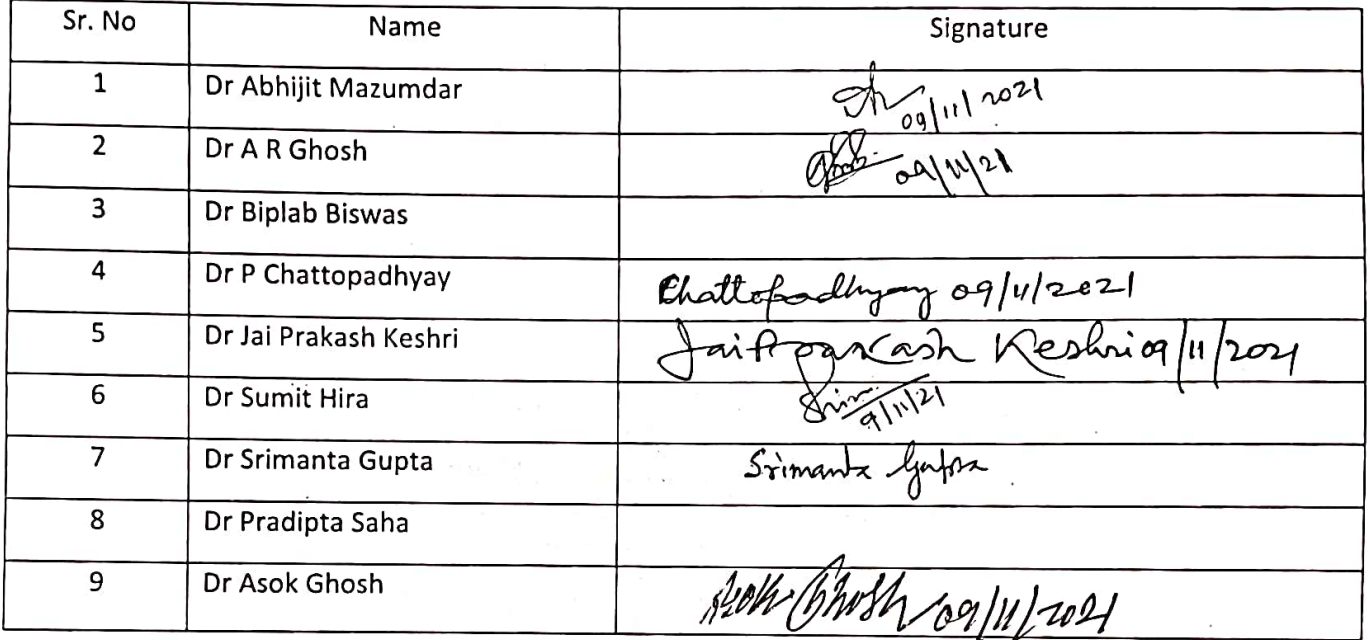 Sr. No Name Signature
1 Dr Abhijit Mazumdar 09/11/2021
2 Dr A R Ghosh 09/11/21
3 Dr Biplab Biswas
4 Dr P Chattopadhyay Chattopadhyay 09/11/2021
5 Dr Jai Prakash Keshri Jai Prakash Keshri 09/11/2021
6 Dr Sumit Hira 9/11/21
7 Dr Srimanta Gupta Srimanta Gupta
8 Dr Pradipta Saha
9 Dr Asok Ghosh Asok Ghosh 09/11/2021